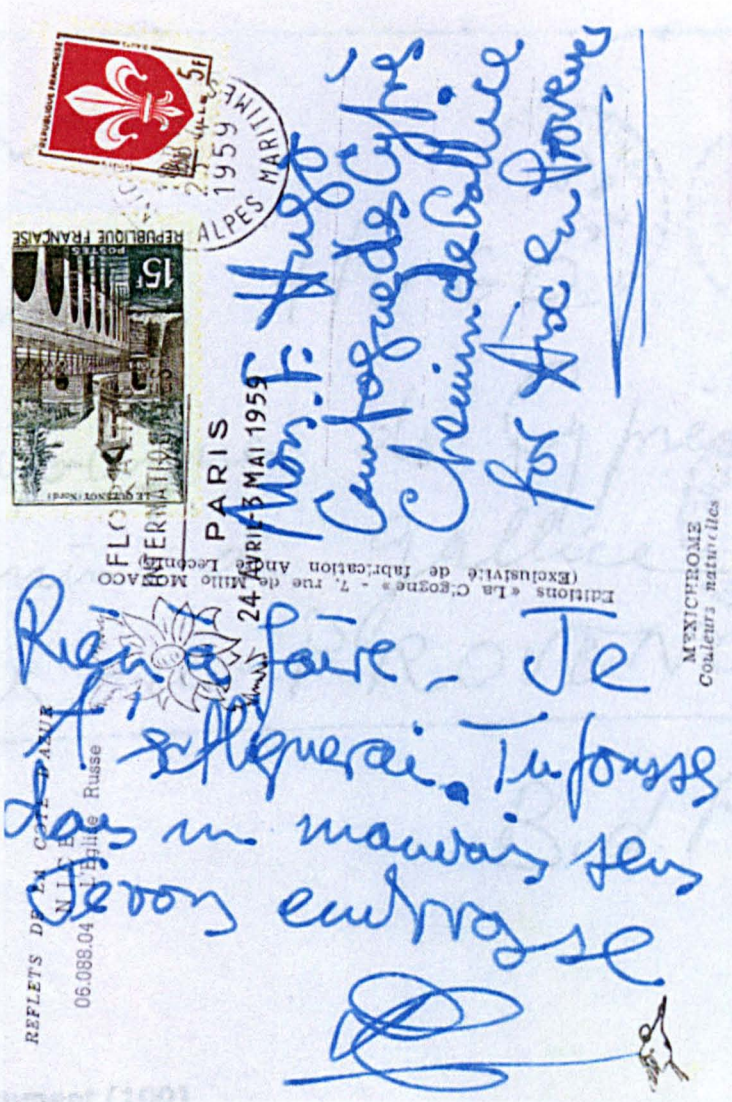 REPUBLIQUE FRANÇAISE
5F
1959
ALPES MARITIME
REPUBLIQUE FRANÇAISE
POSTES
15F
LE QUESNOY (Nord)
PARIS
24 AVRIL-3 MAI 1959
Mons. F. Hugo
Campagne des Cyprès
Chemin de Gallice
par Aix en Provence
Editions « La Cigogne » - 7, rue de Millo MONACO
(Exclusivité de fabrication André Leconte)
MEXICHROME
Couleurs naturelles
REFLETS DE LA COTE D'AZUR
NICE
06.088.04 L'Eglise Russe
Rien à faire - Je
t'expliquerai. Tu pousses
dans un mauvais sens
Je vous embrasse